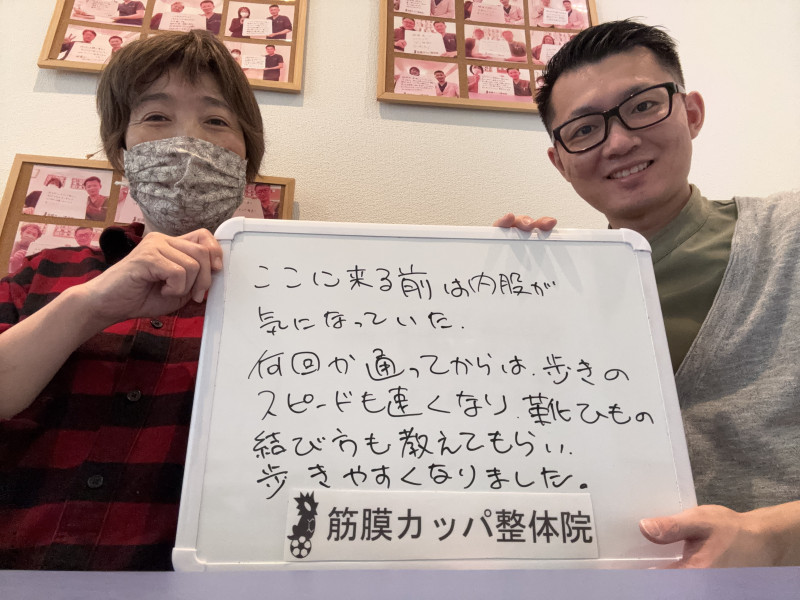 ここに来る前は内股が
気になっていた.
何回か通ってからは、歩きの
スピードも速くなり、靴ひもの
結び方も教えてもらい、
歩きやすくなりました。
筋膜カッパ整体院